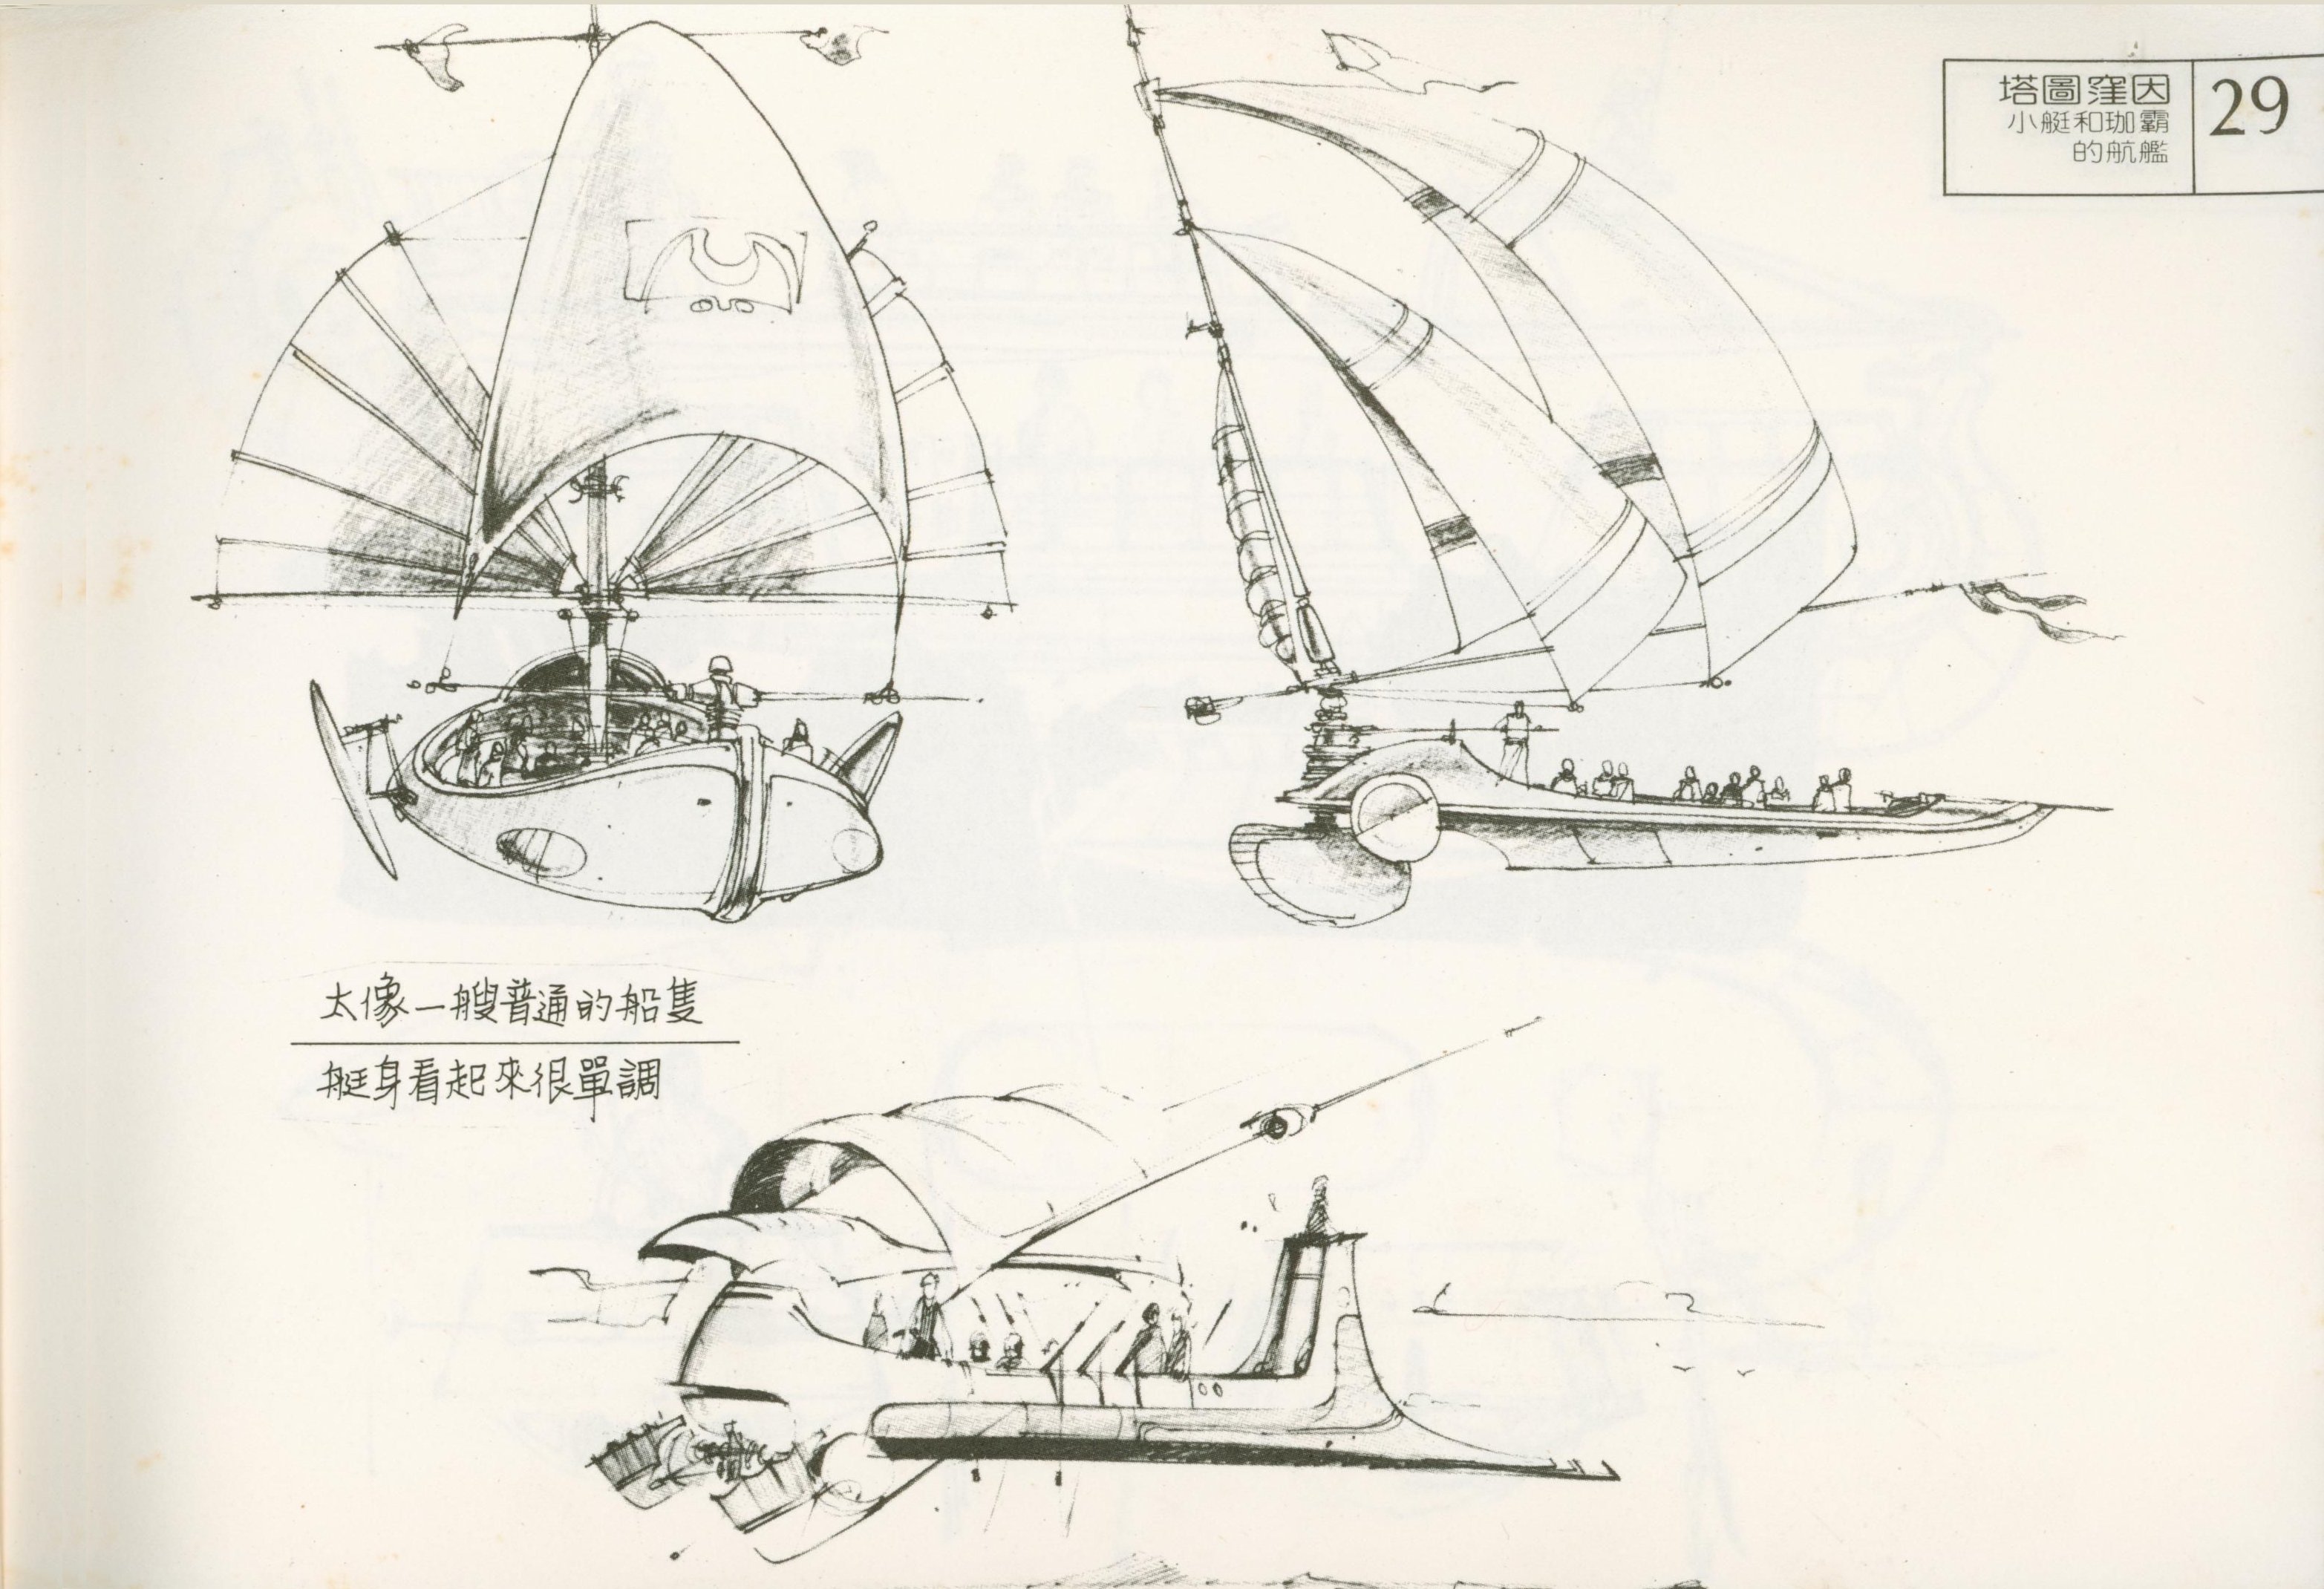 塔圖窪因
小艇和珈霸
的航艦
29
太像一艘普通的船隻
艇身看起來很單調